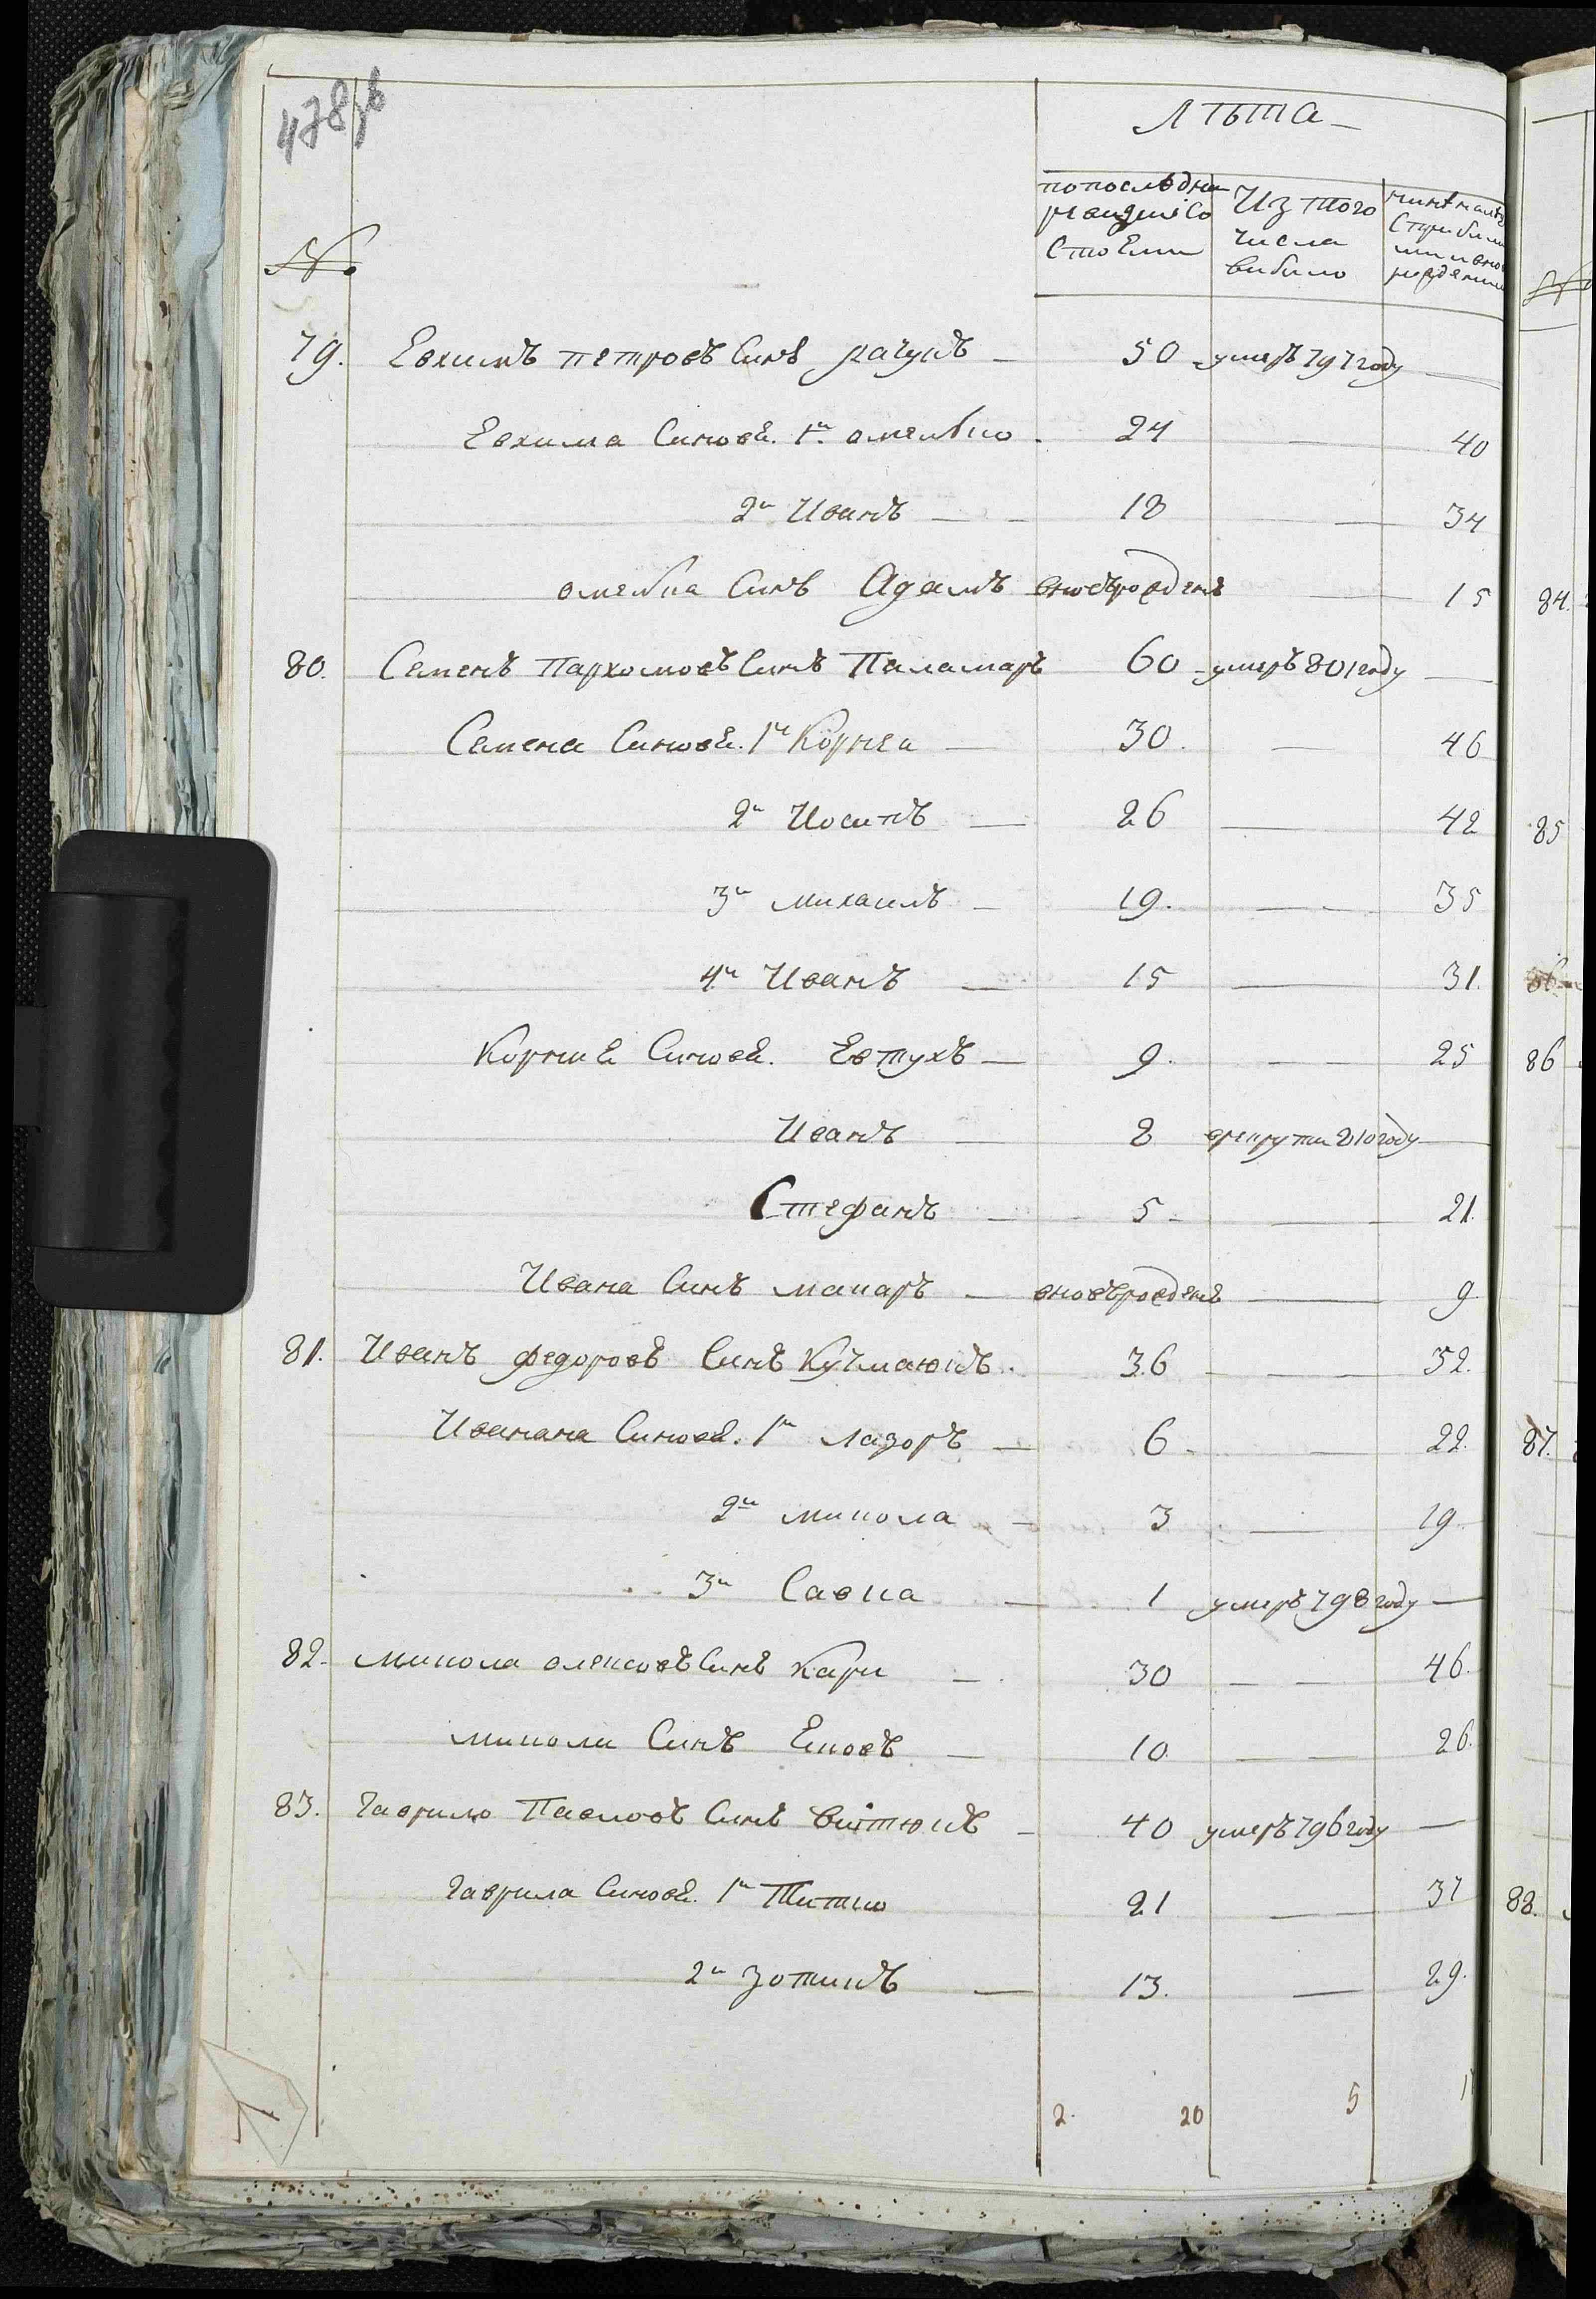 478 зв
Лѣта
№
по последней ревизие состоели
Из того числа вибило
79. Евхимъ петровъ Синъ рачукъ 50 умеръ 797 году
Евхима Синовя. 1й омелько 24 40
2й Иванъ 18 34
омелка Синъ Адамъ вновърожденъ 15
80. Семенъ Пархомовъ Синъ Паламаръ 60 умеръ 801 году
Семена Синовя. 1й Корней 30. 46
2й Иосипъ 26 42
3й михаилъ 19. 35
4й Иванъ 15 31.
Корния Синовя. Евтухъ 9. 25
Иванъ 8 врекрути 810 году
Стефанъ 5 21.
Ивана Синъ макаръ вновърожденъ 9
81. Иванъ федоровъ Синъ Кучмаюкъ. 36 52.
Иванана Синовя. 1й лазоръ 6 22.
2й микола 3 19.
3й Савка 1 умеръ 798 году
82. микола олексовъ Синъ Кари 30 46.
миколи Синъ Яковъ 10 26.
83. Гаврило Павловъ Синъ Витюкъ 40 умеръ 796 году
Гаврила Синовя. 1й Титко 21 37
2й Зотикъ 13. 29.
2. 20 5
№
84.
85
86
87.
88.